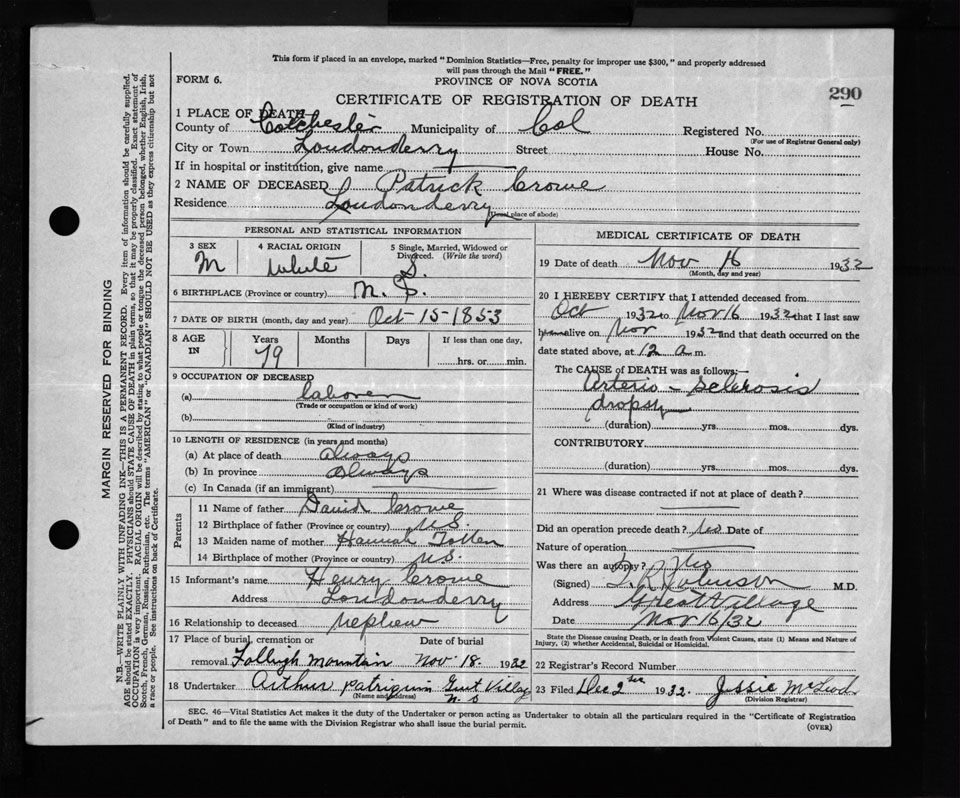 This form if placed in an envelope, marked "Dominion Statistics—Free, penalty for improper use $300," and properly addressed
will pass through the Mail "FREE."
FORM 6.
PROVINCE OF NOVA SCOTIA
CERTIFICATE OF REGISTRATION OF DEATH
290
1 PLACE OF DEATH
County of Colchester Municipality of Col Registered No.
(For use of Registrar General only)
City or Town Londonderry Street House No.
If in hospital or institution, give name
2 NAME OF DECEASED Patrick Crowe
Residence Londonderry
(Usual place of abode)
PERSONAL AND STATISTICAL INFORMATION
3 SEX M
4 RACIAL ORIGIN White
5 Single, Married, Widowed or Divorced. (Write the word) S.
6 BIRTHPLACE (Province or country) N. S.
7 DATE OF BIRTH (month, day and year) Oct-15-1853
8 AGE IN Years 79 Months Days If less than one day, hrs. or min.
9 OCCUPATION OF DECEASED
(a) laborer
(Trade or occupation or kind of work)
(b)
(Kind of industry)
10 LENGTH OF RESIDENCE (in years and months)
(a) At place of death always
(b) In province always
(c) In Canada (if an immigrant)
Parents
11 Name of father David Crowe
12 Birthplace of father (Province or country) N.S.
13 Maiden name of mother Hannah Totten
14 Birthplace of mother (Province or country) N.S.
15 Informant's name Henry Crowe
Address Londonderry
16 Relationship to deceased nephew
17 Place of burial, cremation or Date of burial
removal Folleigh Mountain Nov 18. 1932
18 Undertaker Arthur Patriquin Great Village
(Name and address) N. S
MEDICAL CERTIFICATE OF DEATH
19 Date of death Nov 16 1932
(Month, day and year)
20 I HEREBY CERTIFY that I attended deceased from
Oct 1932 to Nov 16 1932 that I last saw
him alive on Nov 1932 and that death occurred on the
date stated above, at 12 a m.
The CAUSE of DEATH was as follows:—
Arterio-sclerosis
dropsy
(duration) yrs. mos. dys.
CONTRIBUTORY
(duration) yrs. mos. dys.
21 Where was disease contracted if not at place of death?
Did an operation precede death? No Date of
Nature of operation
Was there an autopsy? No
(Signed) Johnson M.D.
Address Great Village
Date Nov 16/32
State the Disease causing Death, or in death from Violent Causes, state (1) Means and Nature of
Injury, (2) whether Accidental, Suicidal or Homicidal.
22 Registrar's Record Number
23 Filed Dec 2nd 1932. Jessie McLeod
(Division Registrar)
SEC. 46—Vital Statistics Act makes it the duty of the Undertaker or person acting as Undertaker to obtain all the particulars required in the "Certificate of Registration
of Death" and to file the same with the Division Registrar who shall issue the burial permit.
(OVER)
MARGIN RESERVED FOR BINDING
N.B.—WRITE PLAINLY WITH UNFADING INK—THIS IS A PERMANENT RECORD. Every item of information should be carefully supplied.
AGE should be stated EXACTLY. PHYSICIANS should STATE CAUSE OF DEATH in plain terms, so that it may be properly classified. Exact statement of
OCCUPATION is very important. RACIAL ORIGIN will be described by stating to what people or tongue the deceased person belonged, whether English, Irish,
Scotch, French, German, Russian, Ruthenian, etc. The terms "AMERICAN" or "CANADIAN" SHOULD NOT BE USED as they express citizenship but not
a race or people. See instructions on back of Certificate.